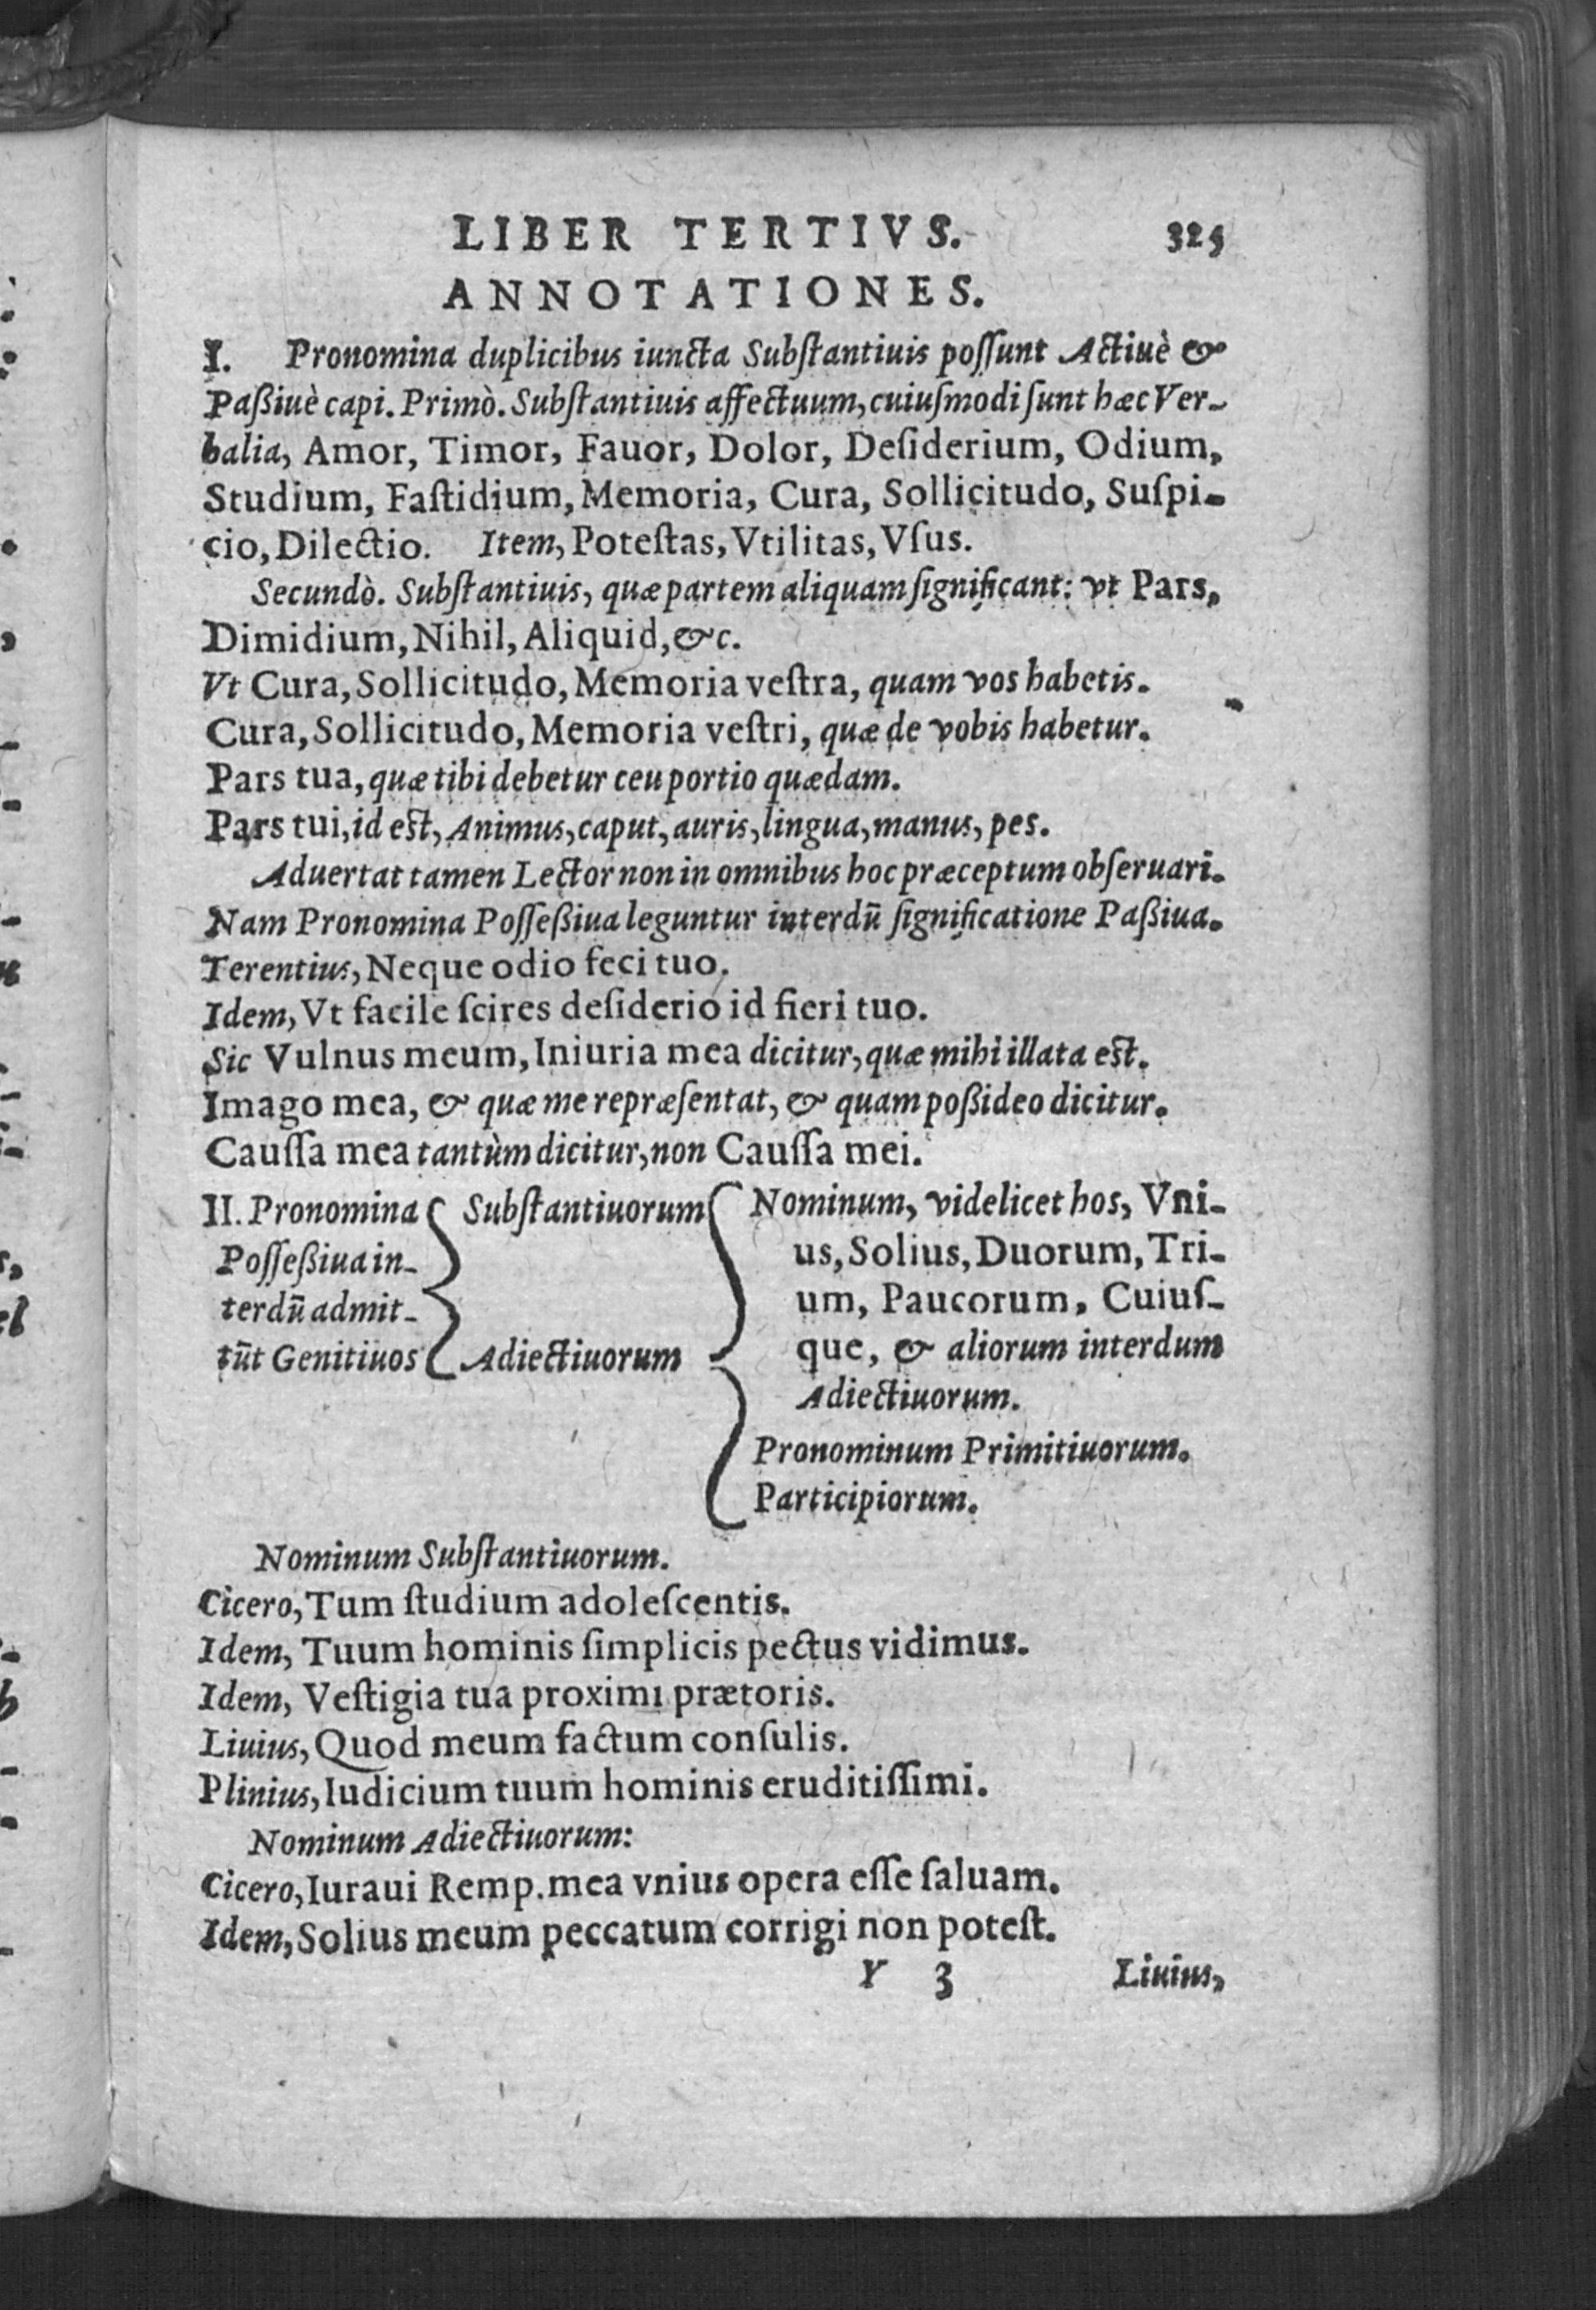 LIBER TERTIVS. 325
ANNOTATIONES.
I. Pronomina duplicibus iuncta Subſtantiuis poſſunt Actiuè &
Paßiuè capi. Primò. Subſtantiuis affectuum, cuiuſmodi ſunt hæc Ver-
balia, Amor, Timor, Fauor, Dolor, Deſiderium, Odium,
Studium, Faſtidium, Memoria, Cura, Sollicitudo, Suſpi-
cio, Dilectio. Item, Poteſtas, Vtilitas, Vſus.
Secundò. Subſtantiuis, quæ partem aliquam ſignificant: vt Pars,
Dimidium, Nihil, Aliquid, &c.
Vt Cura, Sollicitudo, Memoria veſtra, quam vos habetis.
Cura, Sollicitudo, Memoria veſtri, quæ de vobis habetur.
Pars tua, quæ tibi debetur ceu portio quædam.
Pars tui, id eſt, Animus, caput, auris, lingua, manus, pes.
Aduertat tamen Lector non in omnibus hoc præceptum obſeruari.
Nam Pronomina Poſſeßiua leguntur interdũ ſignificatione Paßiua.
Terentius, Neque odio feci tuo.
Idem, Vt facile ſcires deſiderio id fieri tuo.
Sic Vulnus meum, Iniuria mea dicitur, quæ mihi illata eſt.
Imago mea, & quæ me repræſentat, & quam poßideo dicitur.
Cauſſa mea tantùm dicitur, non Cauſſa mei.
II. Pronomina
Poſſeßiua in-
terdũ admit-
tũt Genitiuos
Subſtantiuorum
Adiectiuorum
Nominum, videlicet hos, Vni-
us, Solius, Duorum, Tri-
um, Paucorum, Cuiuſ-
que, & aliorum interdum
Adiectiuorum.
Pronominum Primitiuorum.
Participiorum.
Nominum Subſtantiuorum.
Cicero, Tum ſtudium adoleſcentis.
Idem, Tuum hominis ſimplicis pectus vidimus.
Idem, Veſtigia tua proximi prætoris.
Liuius, Quod meum factum conſulis.
Plinius, Iudicium tuum hominis eruditiſſimi.
Nominum Adiectiuorum:
Cicero, Iuraui Remp. mea vnius opera eſſe ſaluam.
Idem, Solius meum peccatum corrigi non poteſt.
Y 3 Liuius,